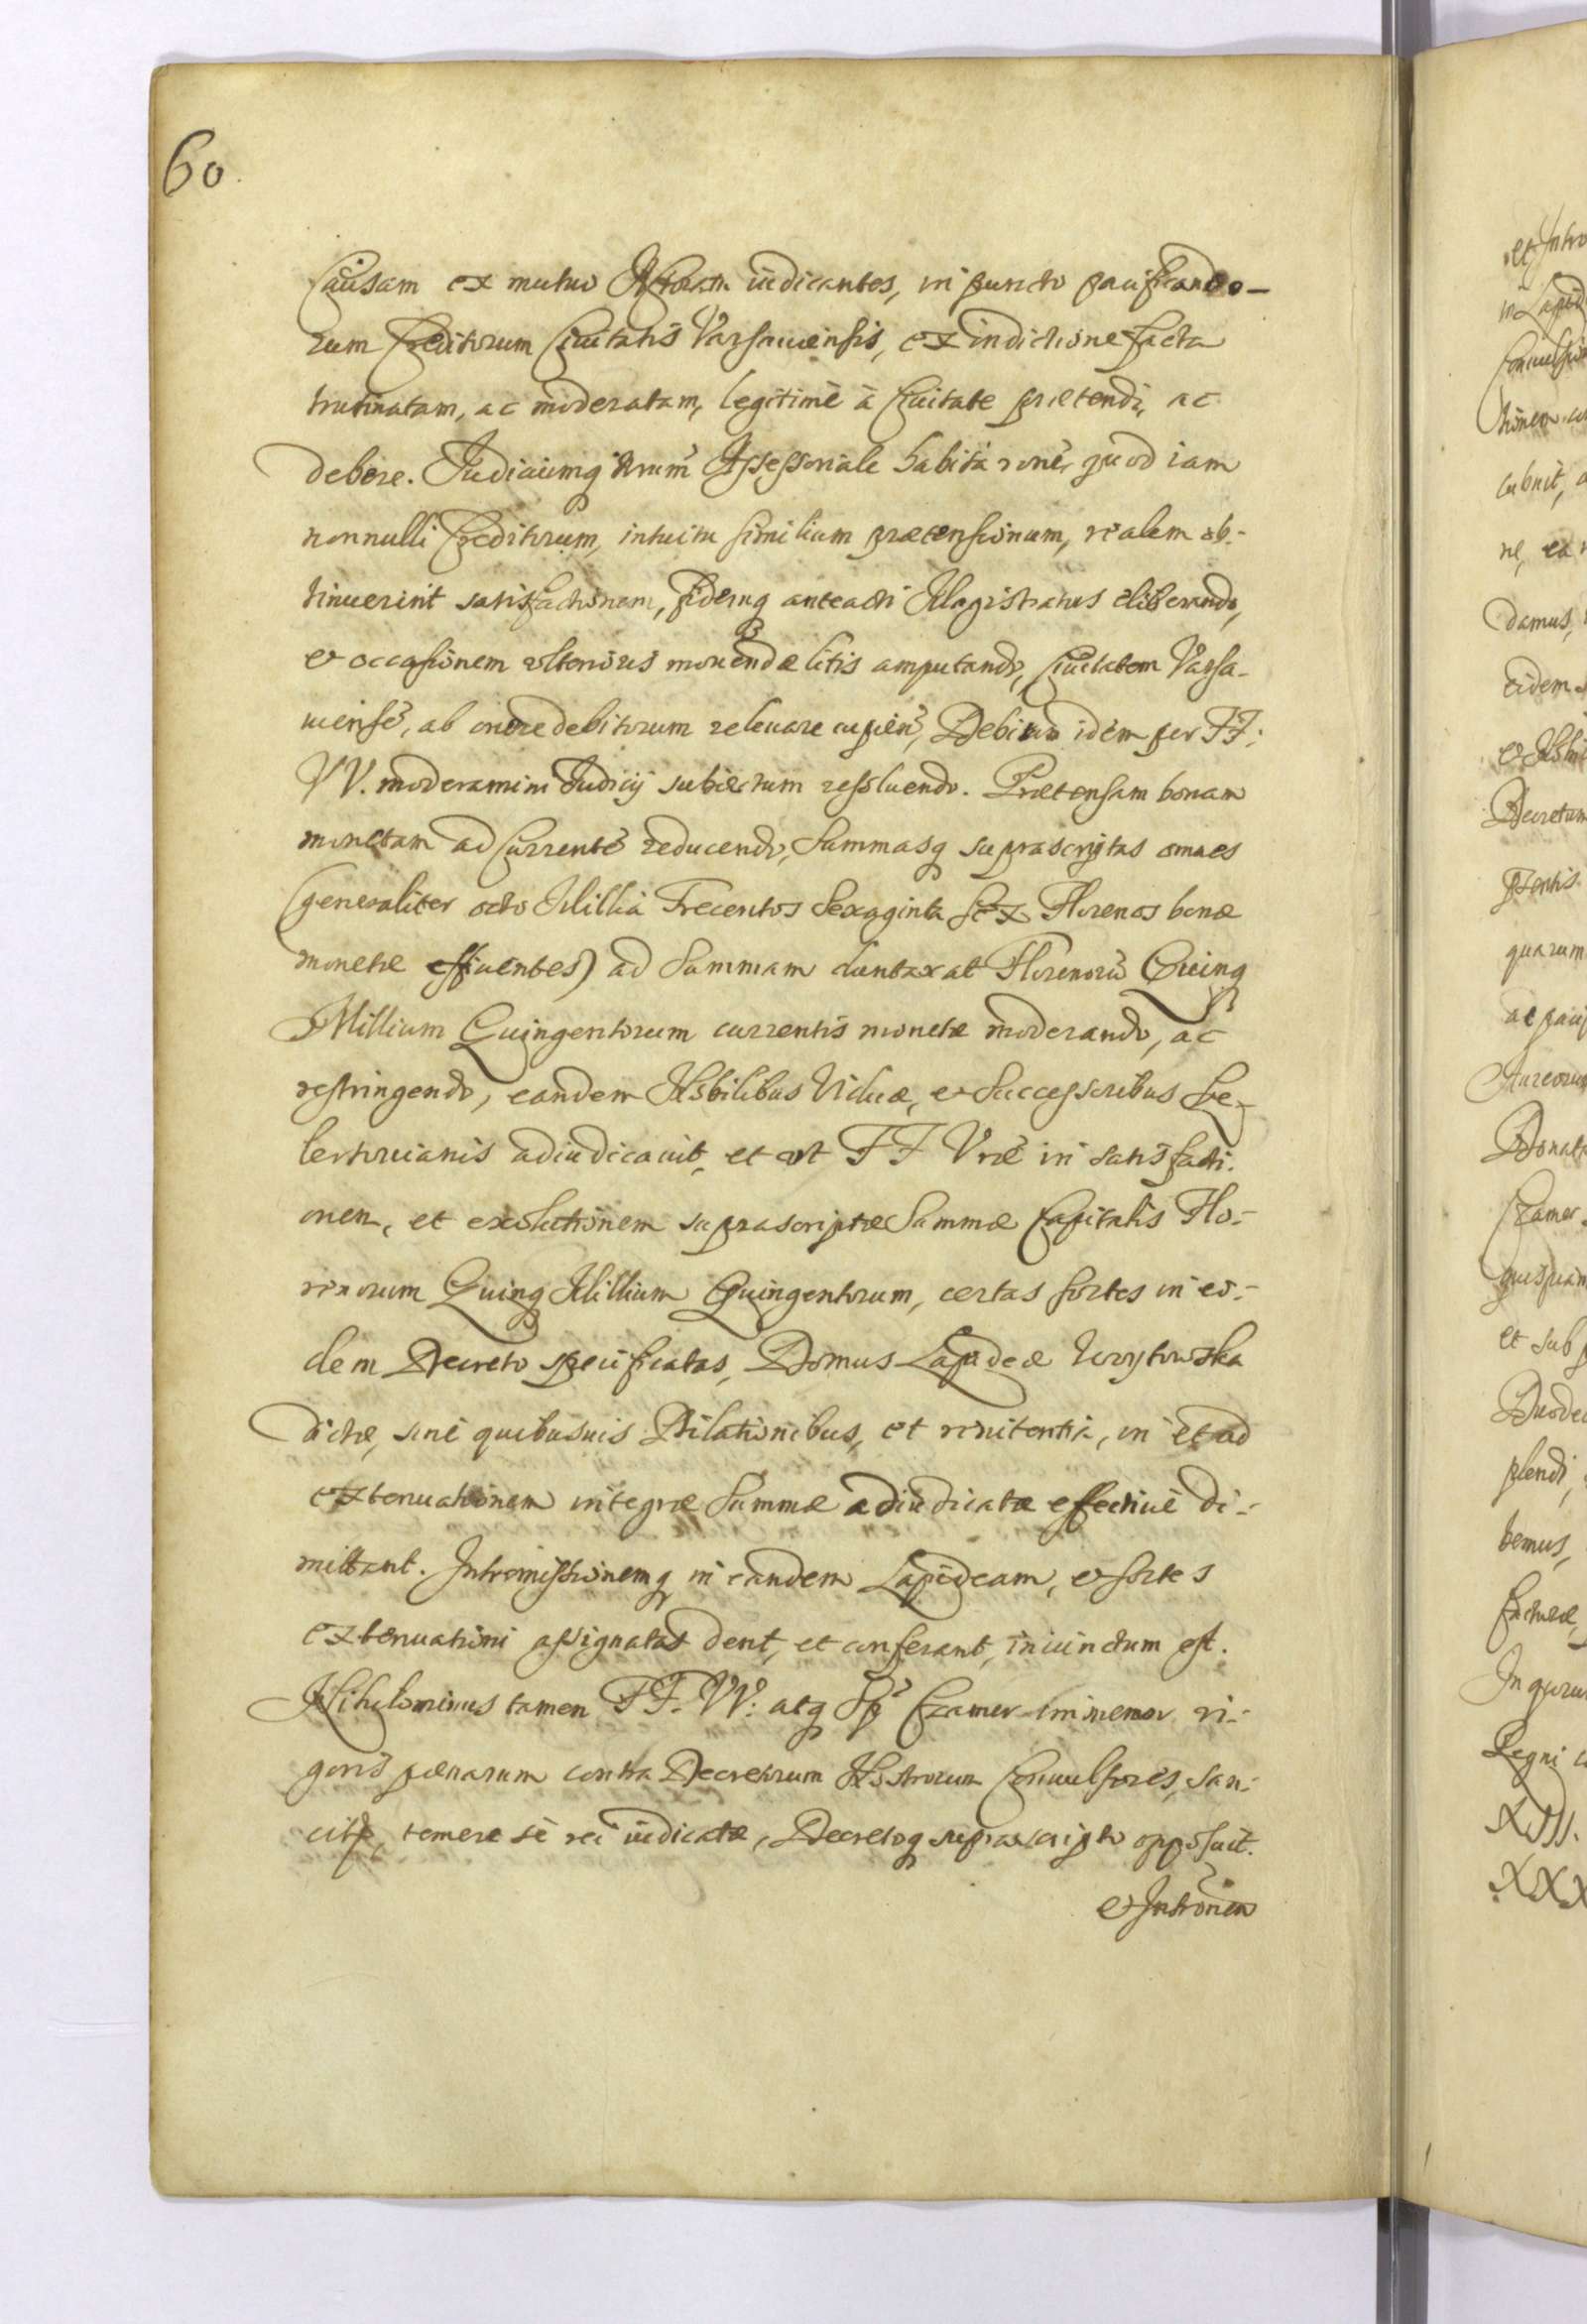 60.
Causam ex mutuo Actoratu iudicantes, in puncto pacificando-
rum Creditorum Ciuitatis Varsauiensis, ex indictione facta
trutinatam, ac moderatam, legitimè à Ciuitate prætendi, ac
debere. Iudiciumq Assessoriale habita rone, quod iam
nonnulli Creditorum, intuitu similium prætensionum, realem ob-
tinuerint satisfactionem, fidemq anteacti Magistratus eliberando,
et occasionem vlterioris mouendæ litis amputando, Ciuitatem Varsa-
uiensẽ, ab onere debitorum releuare cupien, Debitum idem per FF:
VV. moderamini Iudicij subiectum resoluendo. Prætensam bonam
monetam ad Currentẽ reducendo, Summasq suprascriptas omnes
(generaliter octo Millia Trecentos Sexaginta sex Florenos bonæ
monetæ efficientes) ad Summam duntaxat Florenorũ Quinq
Millium Quingentorum currentis monetæ moderando, ac
restringendo, eandem Nobilibus Viduæ, et Successoribus
adiudicauit, et vt FF Vræ in satisfacti-
onem, et exolutionem suprascriptæ Summæ Capitalis Flo-
renorum Quinq Millium Quingentorum, certas sortes in eo-
dem Decreto specificatas, Domus Lapideæ
dictæ, sine quibusuis Dilationibus, et renitentia, in et ad
extenuationem integræ Summæ adiudicatæ effectiuè di-
mittant. Intromissionemq in eandem Lapideam, et sortes
extenuationi assignatas dent, et conferant, iniunctum est.
Nihilominus tamen FF. VV: atq Sp Czamer immemor ri-
goris pænarum contra Decretorum Nostrorum Conuulsores, san-
cit, temere se rei iudicatæ, Decretoq suprascripto opposuit.
et Intronem